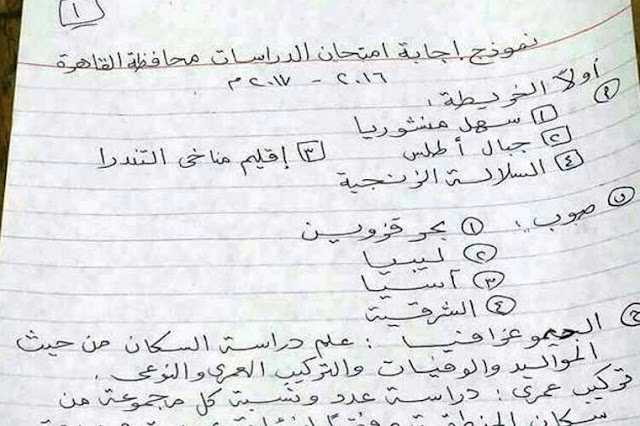 ١
نموذج اجابة امتحان الدراسات محافظة القاهرة
٢٠١٦ - ٢٠١٧ م
أولاً الخريطة :
١ سهل منشوريا
٢ جبال أطلس ٣ إقليم مناخى التندرا
٤ السلالة الزنجية
صوب : ١ بحر قزوين
٢ ليبيا
٣ آسيا
٤ الشرقية
الديموغرافيا : علم دراسة السكان من حيث
المواليد والوفيات والتركيب العمرى والنوعى .
تركيب عمرى : دراسة عدد ونسبة كل مجموعة من
سكان